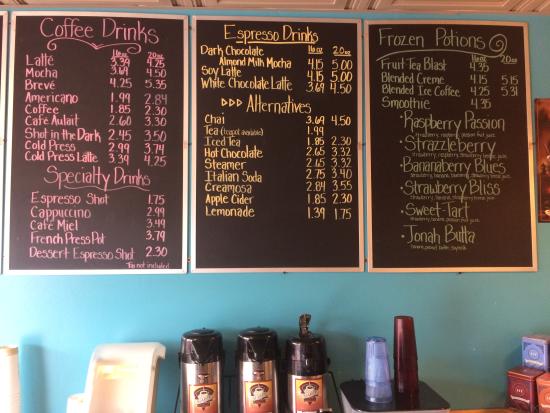 Coffee Drinks
16oz 20oz
Latté 3.39 4.25
Mocha 3.69 4.50
Brevé 4.25 5.35
Americano 1.99 2.84
Coffee 1.85 2.30
Café Aulait 2.60 3.30
Shot in the Dark 2.45 3.50
Cold Press 2.99 3.74
Cold Press Latte 3.39 4.25
Specialty Drinks
Espresso Shot 1.75
Cappuccino 2.99
Café Miel 3.49
French Press Pot 3.79
Dessert Espresso Shot 2.30
Tax not included
Espresso Drinks
Dark Chocolate 16oz 20oz
Almond Milk Mocha 4.15 5.00
Soy Latte 4.15 5.00
White Chocolate Latte 3.69 4.50
Alternatives
Chai 3.69 4.50
Tea (teapot available) 1.99
Iced Tea 1.85 2.30
Hot Chocolate 2.65 3.32
Steamer 2.65 3.32
Italian Soda 2.75 3.40
Creamosa 2.84 3.55
Apple Cider 1.85 2.30
Lemonade 1.39 1.75
Frozen Potions
16oz 20oz
Fruit Tea Blast 4.35
Blended Creme 4.15 5.15
Blended Ice Coffee 4.25 5.31
Smoothie 4.35
• Raspberry Passion
• Strazzleberry
• Bananaberry Blues
• Strawberry Bliss
• Sweet-Tart
• Jonah Butta
banana, peanut butter, soymilk